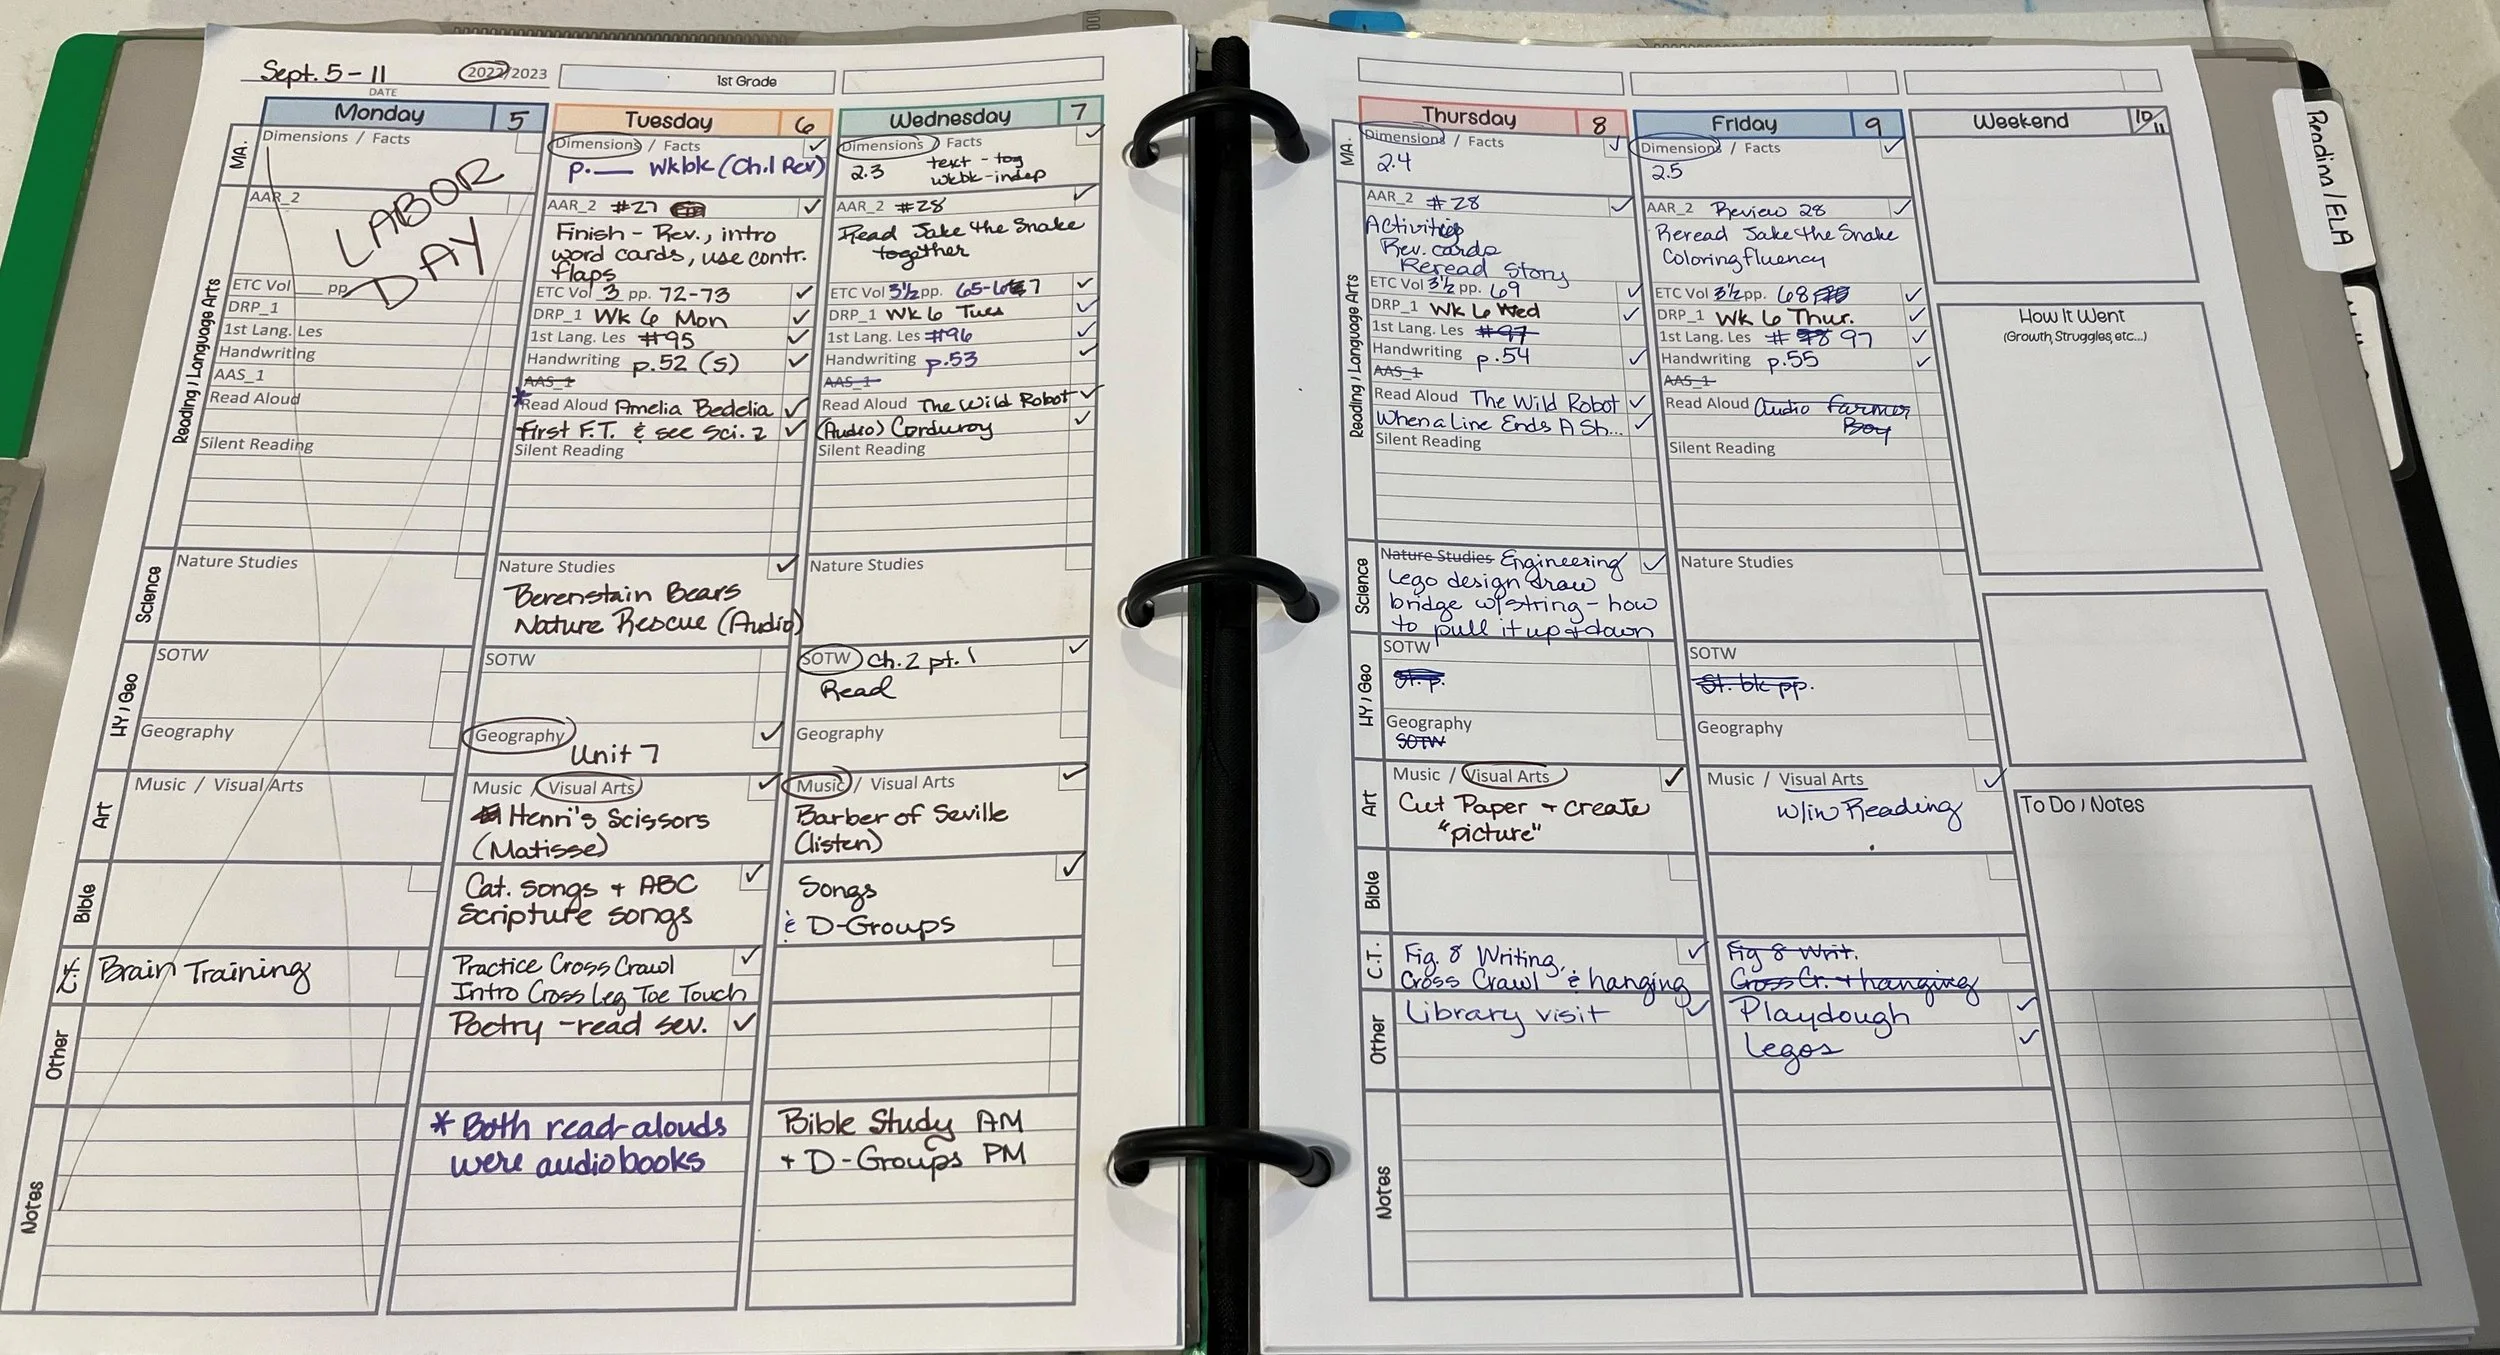 Sept. 5-11
2022/2023
DATE
1st Grade
Monday 5
MA.
Dimensions / Facts
LABOR
DAY
Reading / Language Arts
AAR_2
ETC Vol ___ pp.
DRP_1
1st Lang. Les
Handwriting
AAS_1
Read Aloud
Silent Reading
Science
Nature Studies
HY / Geo
SOTW
Geography
Art
Music / Visual Arts
Bible
C.T.
Brain Training
Other
Notes
Tuesday 6
Dimensions / Facts
p.___ Wkbk (Ch.1 Rev)
AAR_2 #27
Finish - Rev., intro
word cards, use contr.
flaps
ETC Vol 3 pp. 72-73
DRP_1 Wk 6 Mon
1st Lang. Les #95
Handwriting p.52 (S)
AAS_1
*Read Aloud Amelia Bedelia
First F.T. & see Sci. 2
Silent Reading
Nature Studies
Berenstain Bears
Nature Rescue (Audio)
SOTW
Geography
Unit 7
Music / Visual Arts
Henri's Scissors
(Matisse)
Cat. songs + ABC
Scripture songs
Practice Cross Crawl
Intro Cross Leg Toe Touch
Poetry - read sev.
* Both read-alouds
were audiobooks
Wednesday 7
Dimensions / Facts
2.3 text - tog
wkbk-indep
AAR_2 #28
Read Jake the Snake
together
ETC Vol 3½ pp. 65-67
DRP_1 Wk 6 Tues
1st Lang. Les #96
Handwriting p.53
AAS_1
Read Aloud The Wild Robot
(Audio) Corduroy
Silent Reading
Nature Studies
SOTW Ch.2 pt.1
Read
Geography
Music / Visual Arts
Barber of Seville
(listen)
Songs
& D-Groups
Bible Study AM
+ D-Groups PM
Thursday 8
MA.
Dimensions / Facts
2.4
Reading / Language Arts
AAR_2 #28
Activities
Rev. cards
Reread Story
ETC Vol 3½ pp. 69
DRP_1 Wk 6 Wed
1st Lang. Les #97
Handwriting p.54
AAS_1
Read Aloud The Wild Robot
When a Line Ends A Sh...
Silent Reading
Science
Nature Studies Engineering
Lego design draw
bridge w/string - how
to pull it up + down
HY / Geo
SOTW
St. p.
Geography
SOTW
Art
Music / Visual Arts
Cut Paper + create
"picture"
Bible
C.T.
Fig. 8 Writing,
Cross Crawl & hanging
Other
Library visit
Notes
Friday 9
Dimensions / Facts
2.5
AAR_2 Review 28
Reread Jake the Snake
Coloring fluency
ETC Vol 3½ pp. 68
DRP_1 Wk 6 Thur.
1st Lang. Les # 98 97
Handwriting p.55
AAS_1
Read Aloud Audio Farmer
Boy
Silent Reading
Nature Studies
SOTW
St. bk pp.
Geography
Music / Visual Arts
w/in Reading
Fig 8 Writ.
Cross Cr. + hanging
Playdough
Legos
Weekend 10/11
How It Went
(Growth, Struggles, etc...)
To Do / Notes
Reading/ELA